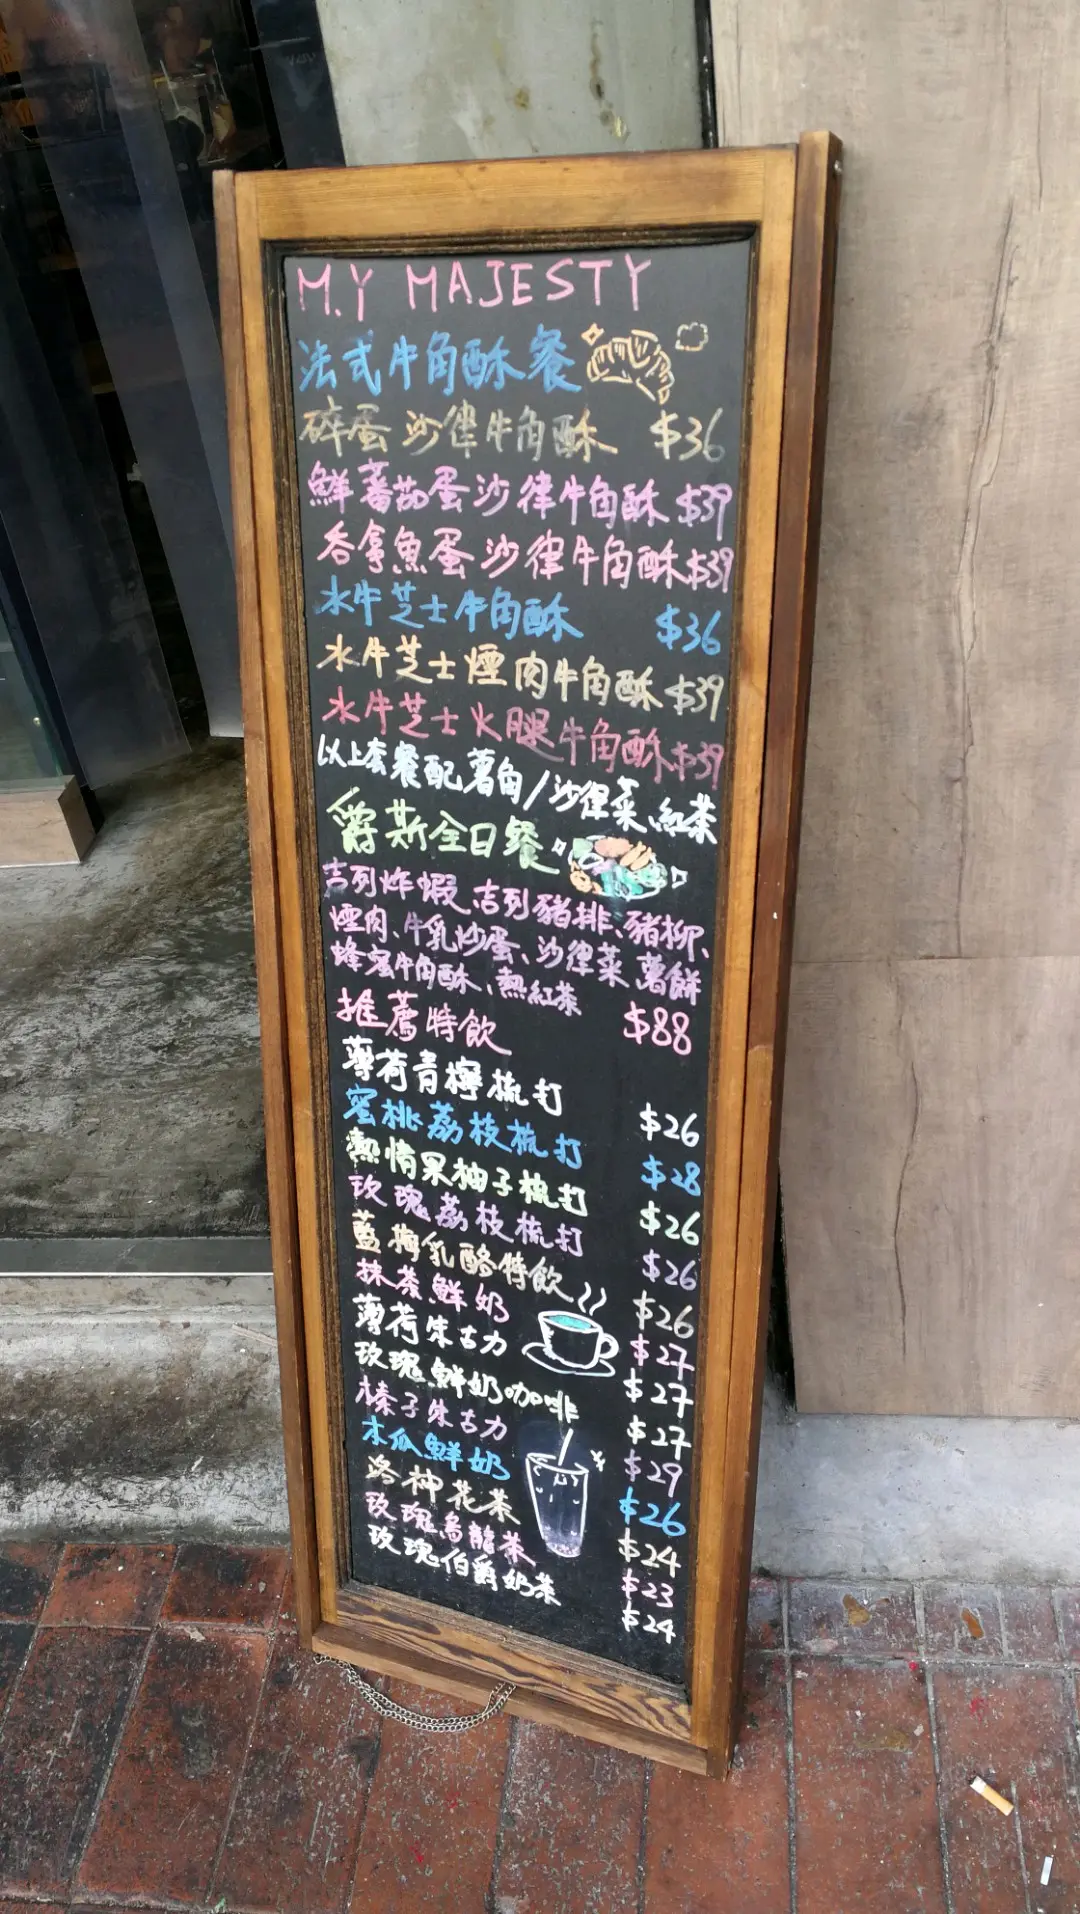 M.Y MAJESTY
法式牛角酥餐
碎蛋沙律牛角酥 $36
鮮蕃茄蛋沙律牛角酥 $39
吞拿魚蛋沙律牛角酥 $39
水牛芝士牛角酥 $36
水牛芝士煙肉牛角酥 $39
水牛芝士火腿牛角酥 $39
以上套餐配薯角/沙律菜、紅茶
爵斯全日餐
吉列炸蝦、吉列豬排、豬柳、
煙肉、牛乳炒蛋、沙律菜、薯餅
蜂蜜牛角酥、熱紅茶 $88
推薦特飲
薄荷青檸梳打 $26
蜜桃荔枝梳打 $28
熱情果柚子梳打 $26
玫瑰荔枝梳打 $26
藍莓乳酪特飲 $26
抹茶鮮奶 $27
薄荷朱古力 $27
玫瑰鮮奶咖啡 $27
榛子朱古力 $29
木瓜鮮奶 $26
洛神花茶 $24
玫瑰烏龍茶 $23
玫瑰伯爵奶茶 $24